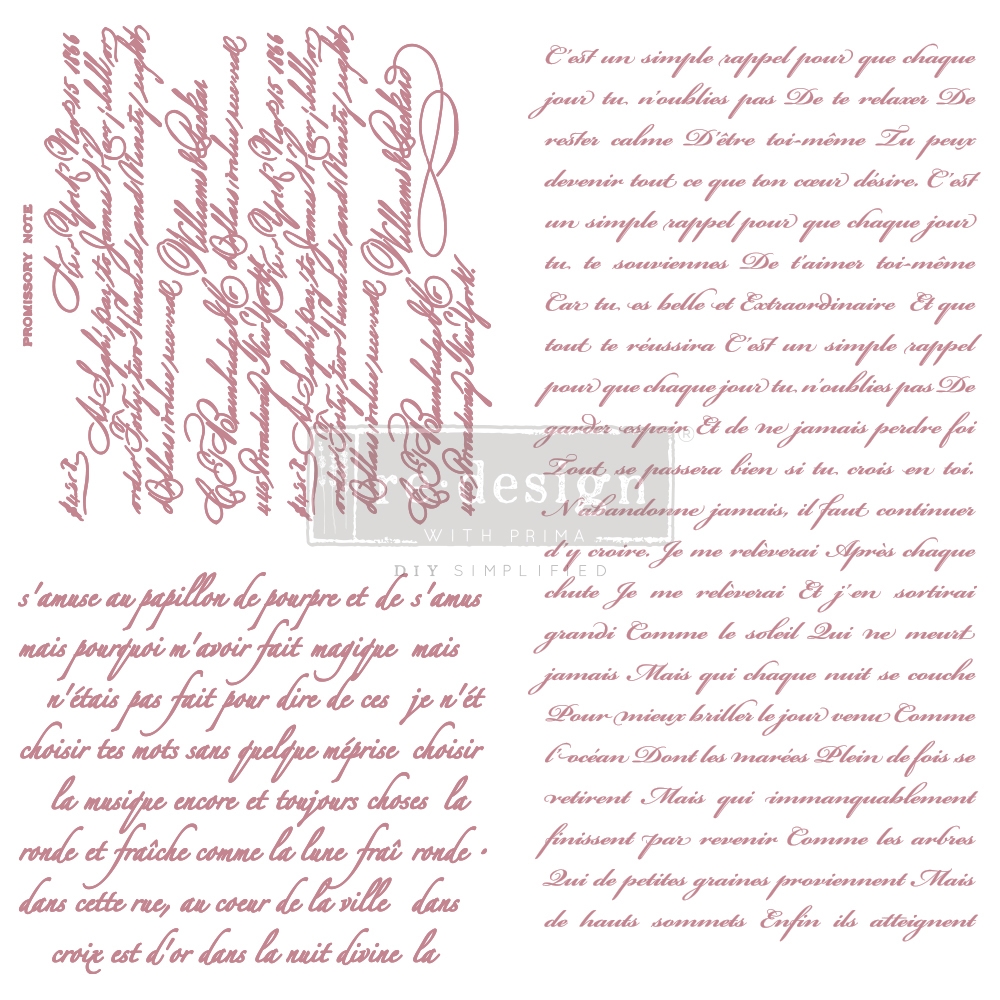 PROMISSORY NOTE
New York Nov 15 1866
At Sight pay to James
William Barker
Broadway New York.
William Barker
Broadway New York.
s'amuse au papillon de pourpre et de s'amus
mais pourquoi m'avoir fait magique mais
n'étais pas fait pour dire de ces je n'ét
choisir tes mots sans quelque méprise choisir
la musique encore et toujours choses la
ronde et fraîche comme la lune fraî ronde ·
dans cette rue, au coeur de la ville dans
croix est d'or dans la nuit divine la
C'est un simple rappel pour que chaque
jour tu n'oublies pas De te relaxer De
rester calme D'être toi-même Tu peux
devenir tout ce que ton cœur désire. C'est
un simple rappel pour que chaque jour
tu te souviennes De t'aimer toi-même
Car tu es belle et Extraordinaire Et que
tout te réussira C'est un simple rappel
pour que chaque jour tu n'oublies pas De
garder espoir Et de ne jamais perdre foi
Tout se passera bien si tu crois en toi.
N'abandonne jamais, il faut continuer
d'y croire. Je me relèverai Après chaque
chute Je me relèverai Et j'en sortirai
grandi Comme le soleil Qui ne meurt
jamais Mais qui chaque nuit se couche
Pour mieux briller le jour venu Comme
l'océan Dont les marées Plein de fois se
retirent Mais qui immanquablement
finissent par revenir Comme les arbres
Qui de petites graines proviennent Mais
de hauts sommets Enfin ils atteignent
re·design®
WITH PRIMA
DIY SIMPLIFIED